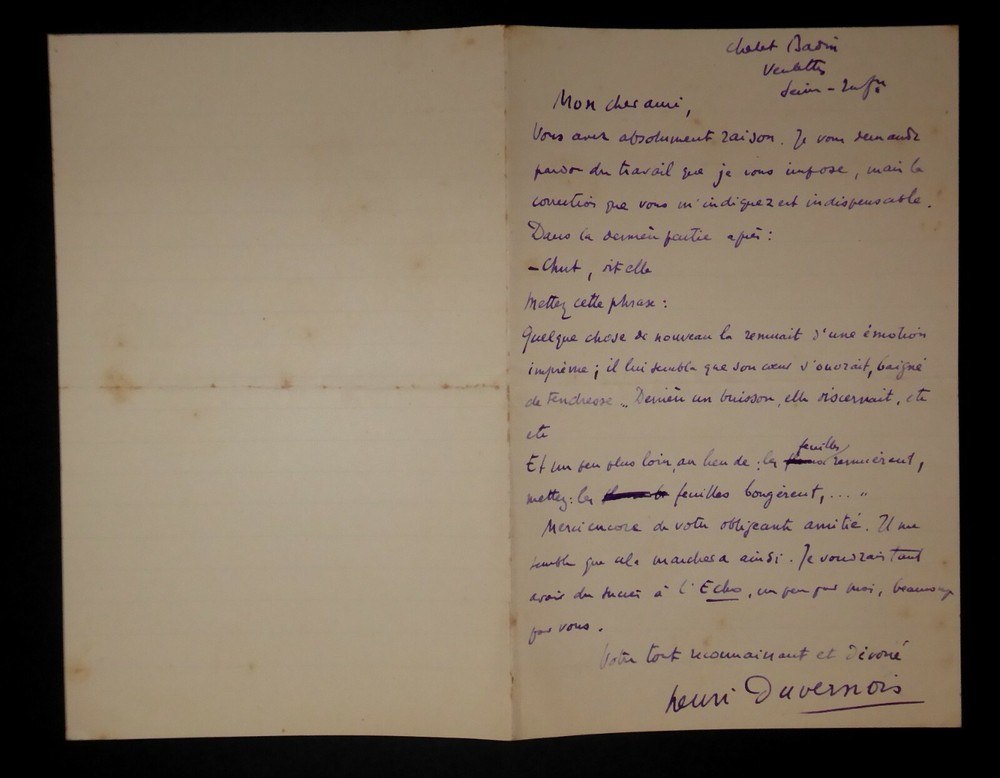 Chalet Badin
Veulettes
Seine-Infre
Mon cher ami,
Vous avez absolument raison. Je vous demande
pardon du travail que je vous impose, mais la
correction que vous m'indiquez est indispensable.
Dans la dernière partie après :
– Chut, dit elle
Mettez cette phrase :
Quelque chose de nouveau la remuait d'une émotion
imprévue ; il lui sembla que son cœur s'ouvrait, baigné
de tendresse .. Derrière un buisson, elle discernait, etc
etc
Et un peu plus loin, au lieu de : les feuilles remuèrent,
mettez : les feuilles bougèrent, ... "
Merci encore de votre obligeante amitié. Il me
semble que cela marchera ainsi. Je voudrais tant
avoir du succès à l'Echo, un peu pour moi, beaucoup
pour vous.
Votre tout reconnaissant et dévoué
Henri Duvernois